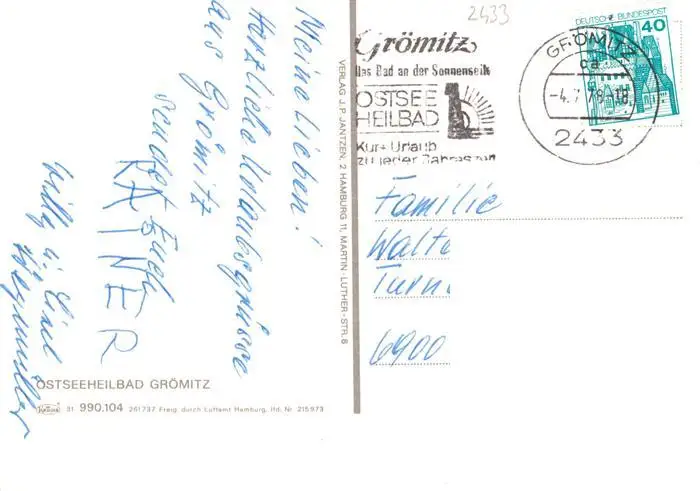 2433
DEUTSCHE BUNDESPOST
40
Grömitz
Das Bad an der Sonnenseite
OSTSEE
HEILBAD
Kur + Urlaub
zu jeder Jahreszeit
GRÖMITZ
-4.7.78-18
2433
Meine Lieben!
Herzliche Urlaubsgrüsse
aus Grömitz
sendet Euch
RAINER
Willy u.
VERLAG J.P. JANTZEN, 2 HAMBURG 11, MARTIN-LUTHER-STR. 8
Familie
Walte
Turn
6900
OSTSEEHEILBAD GRÖMITZ
31 990.104 261737 Freig. durch Luftamt Hamburg, lfd. Nr. 215973